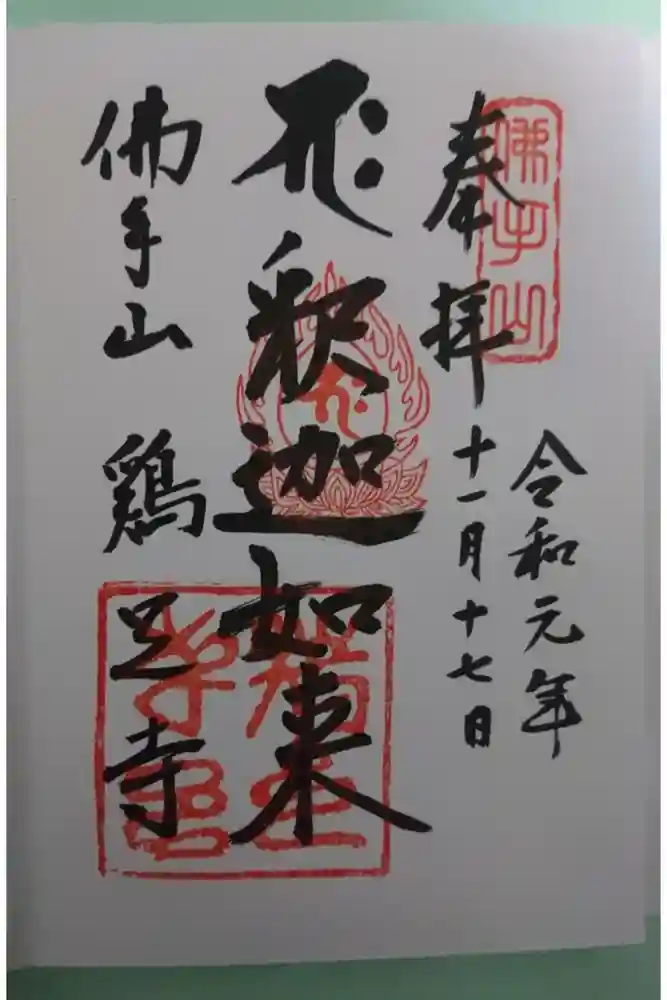 奉拝
佛手山
令和元年
十一月十七日
釈迦如来
佛手山 鶏足寺